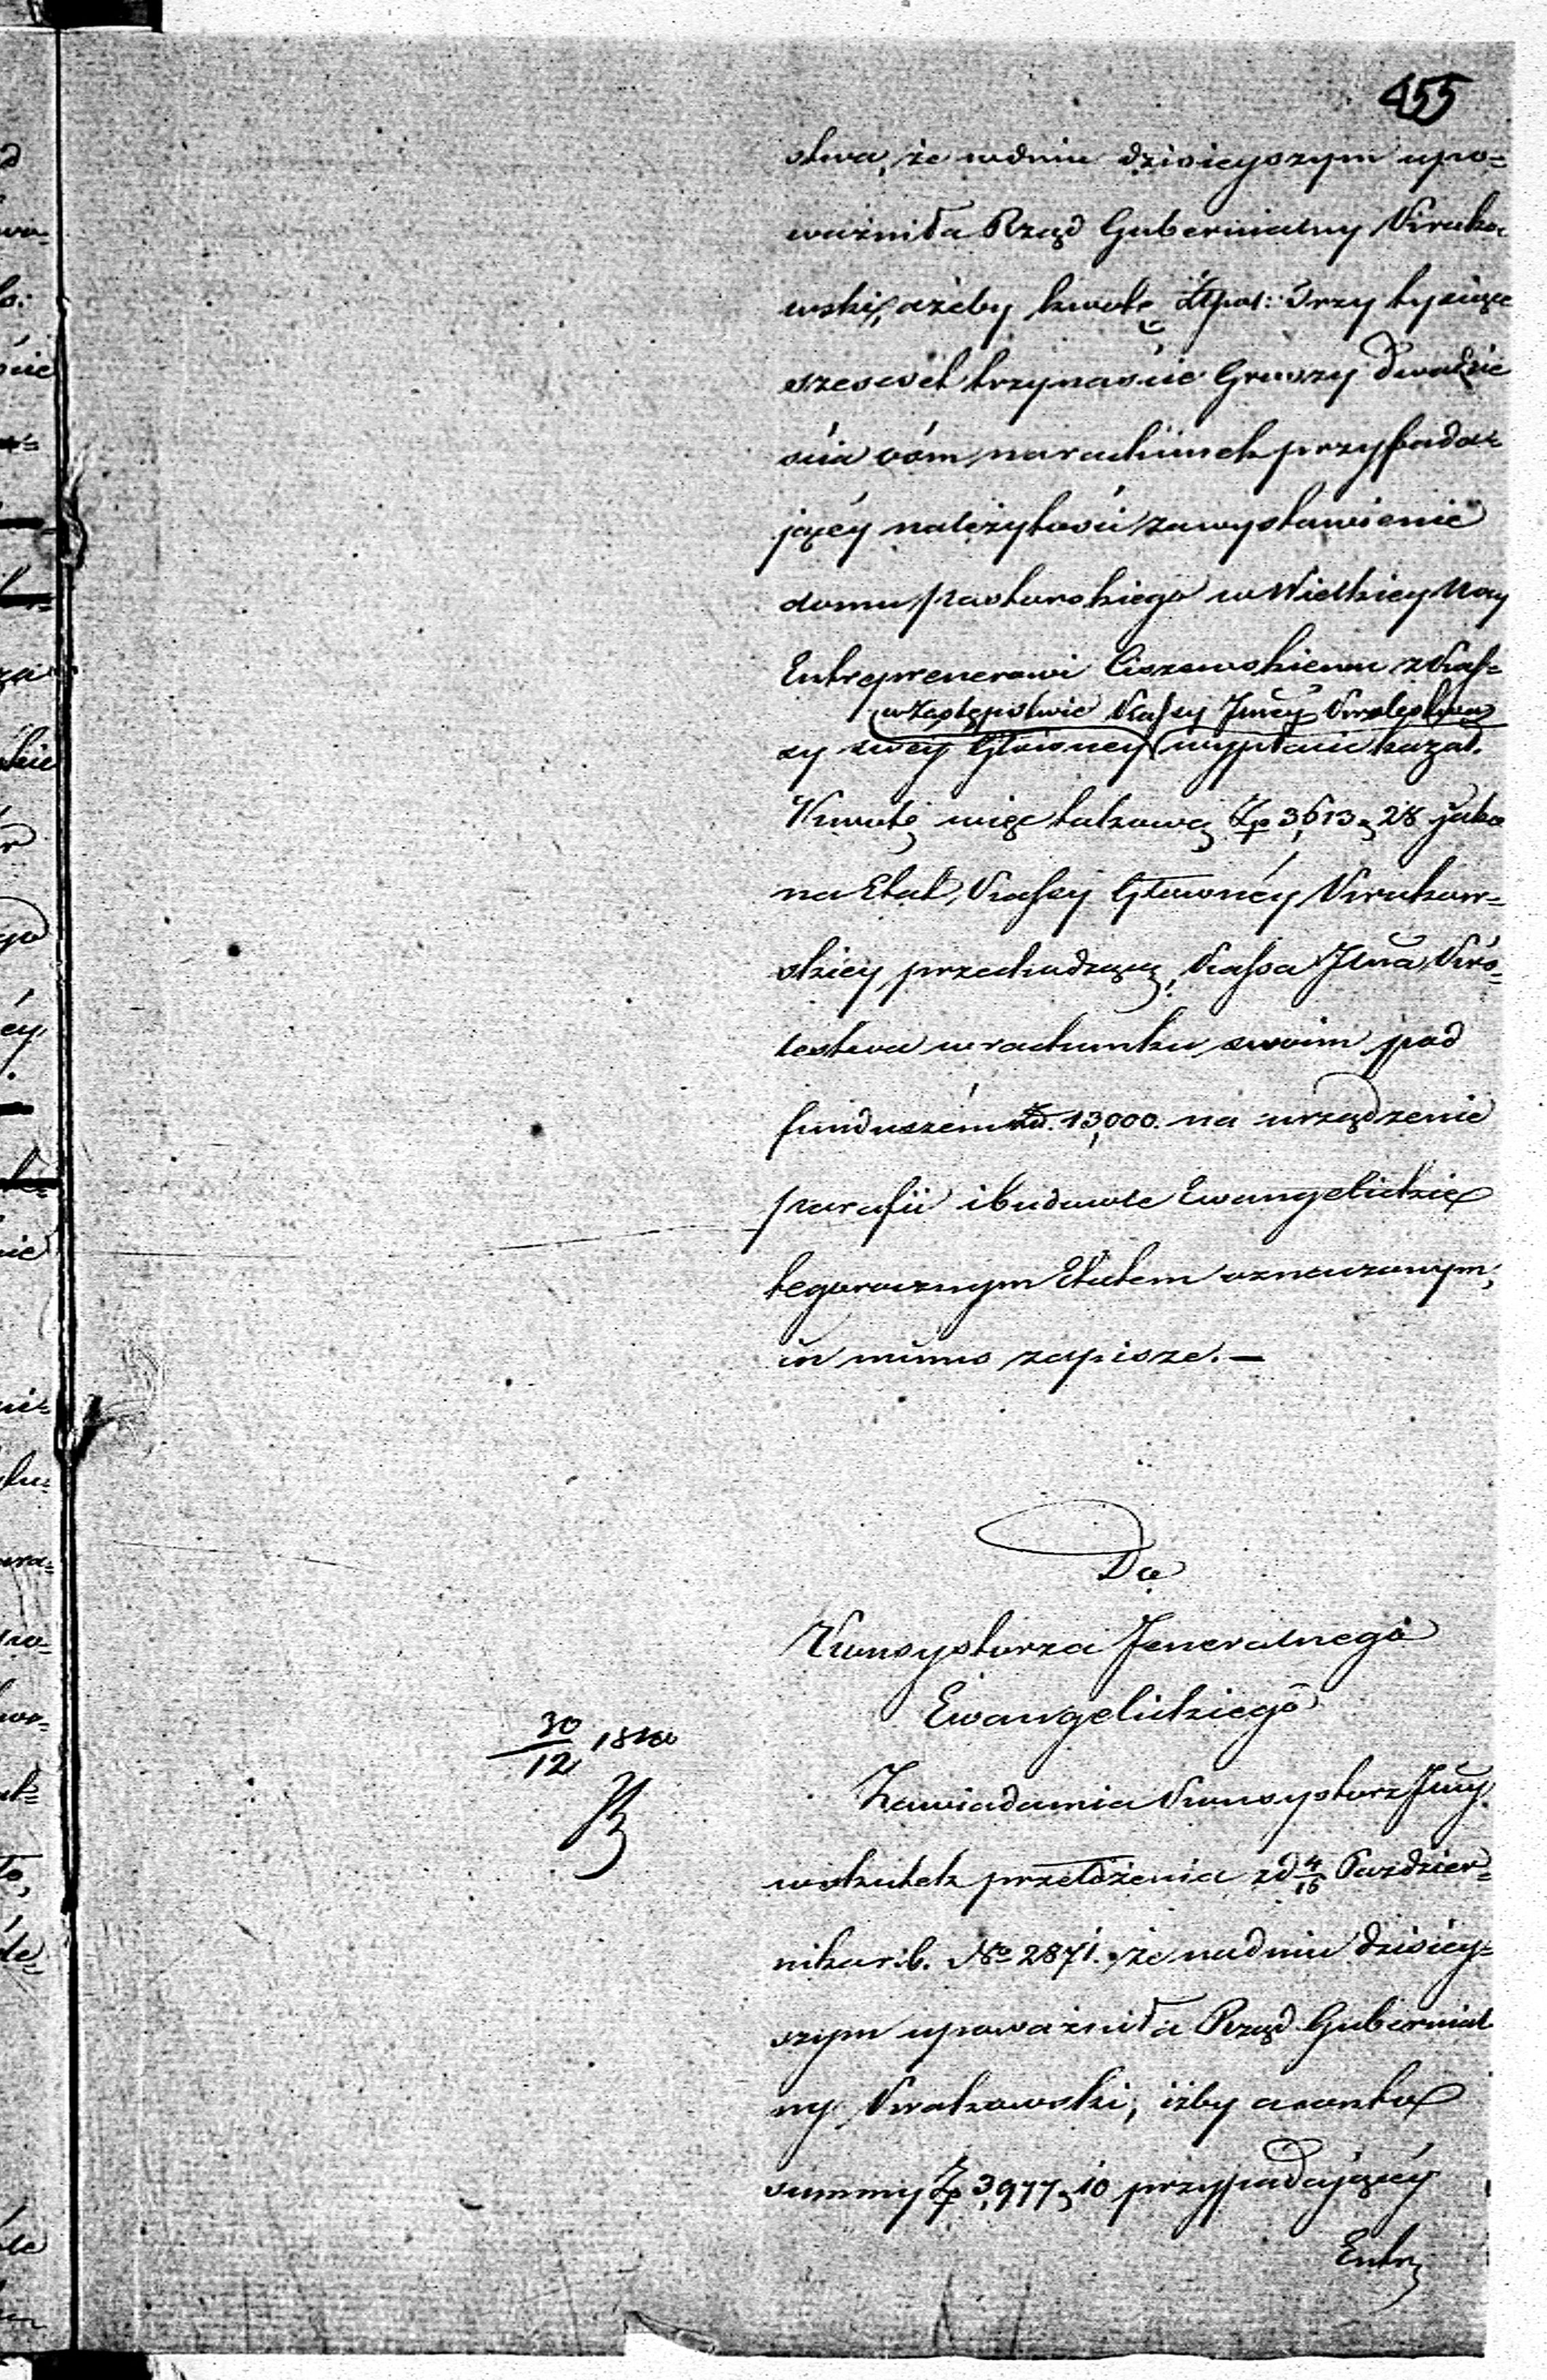 455
stwa, że w dniu dzisieyszym upo=
ważniła Rząd Gubernialny Krako=
wski, ażeby kwotę Złpol: Trzy tysiące
szesćset trzynaście Groszy dwadzie
ścia ośm na rachunek przypada=
jącéy należytości za wystawienie
domu pastorskiego w Wielkiey Wsy
Entreprenerowi Ciszewskiemu z Kas=
w zastępstwie Kassy Jnéy Królestwa
sy swéy Główney wypłacić kazał.
Kwotę więc takową Zp 3,613 g 28 jako
na Etat Kassy Głownéy Krakow=
skiey przechodzącą, Kassa Jlna Kró=
lestwa w rachunku swoim pod
funduszém 13,000. na urządzenie
parafii i budowle Ewangelickie
tegorocznym Etatem oznaczonym,
in minus zapisze. —
Do
Konsystorza Jeneralnego
Ewangelickiego
30/12 18
Zawiadamia Konsystorz Jlny.
w skutek przełożenia z d 4/16 Paździer=
nika r. b. No 2871. że na dniu dzisiéy=
szym upoważniła Rząd Gubernial
ny Krakowski, iżby a conto
summy Zp 3,977 g 10 przypadającéy
Entr